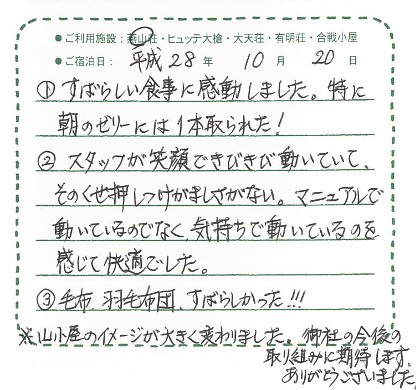 ●ご利用施設:燕山荘・ヒュッテ大槍・大天荘・有明荘・合戦小屋
●ご宿泊日: 平成28年 10月 20日
①すばらしい食事に感動しました。特に
朝のゼリーには1本取られた!
②スタッフが笑顔できびきび動いていて、
そのくせ押しつけがましさがない。マニュアルで
動いているのでなく、気持ちで動いているのを
感じて快適でした。
③毛布、羽毛布団、すばらしかった!!!
※山小屋のイメージが大きく変わりました。御社の今後の
取り組みに期待します。
ありがとうございました